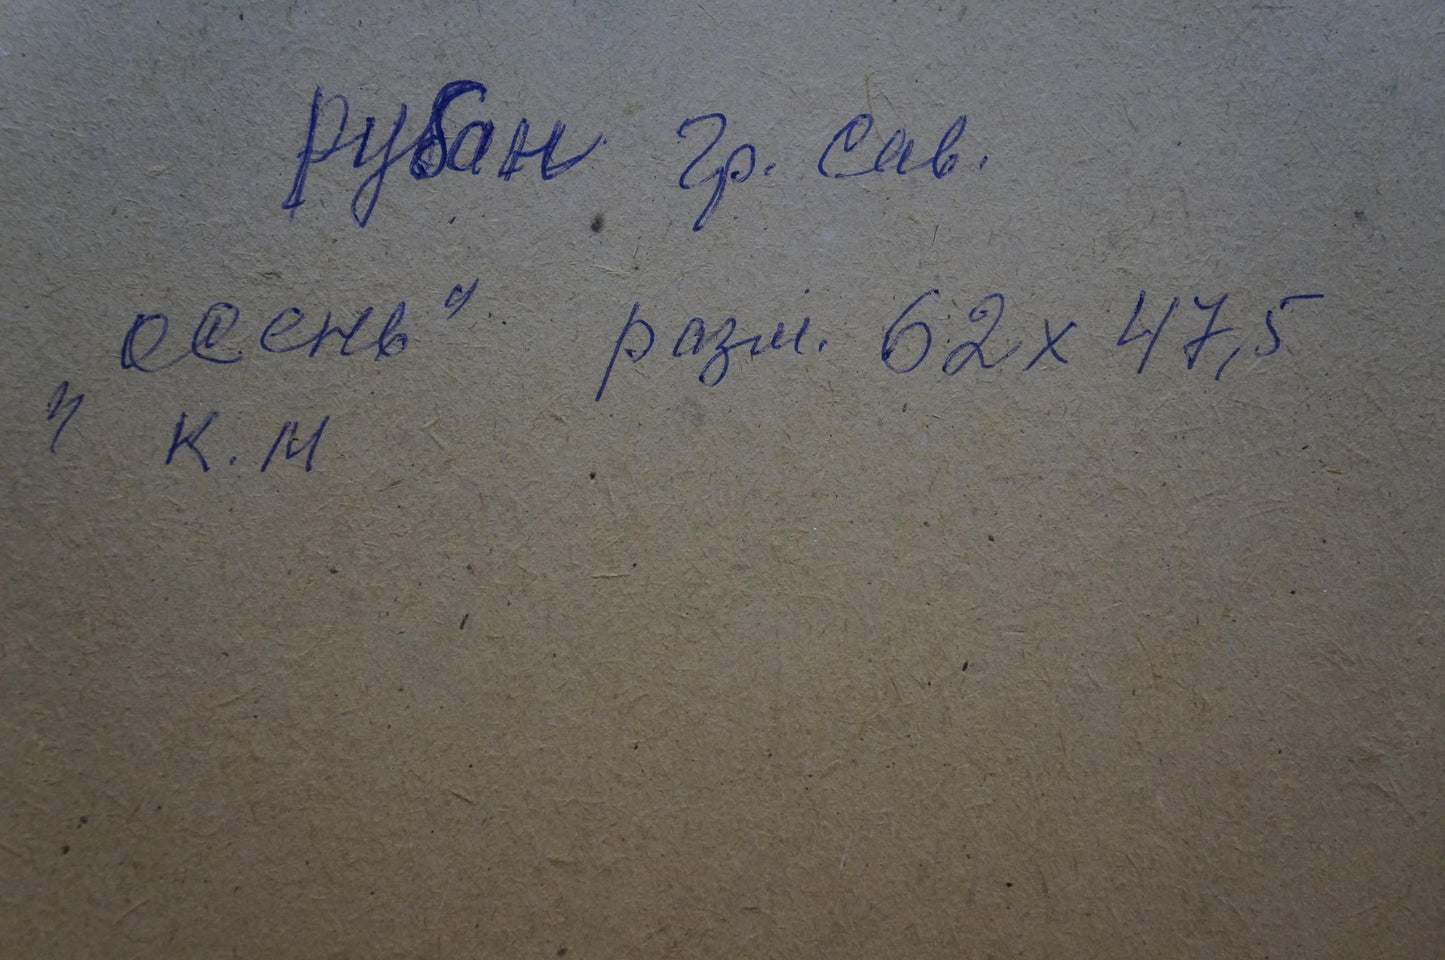 Рубан Гр. Сав.
„осень" разм. 62 х 47,5
к. м